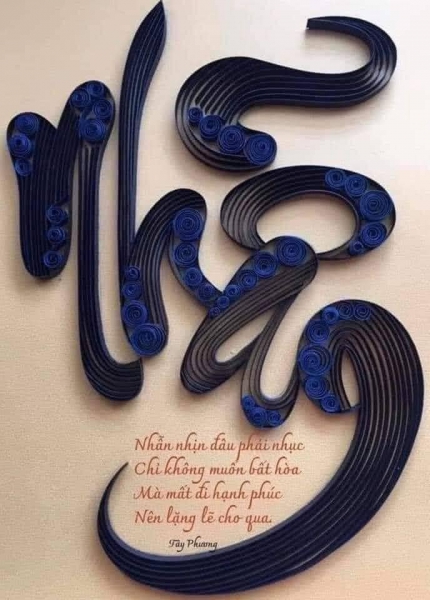 Nhẫn
Nhẫn nhịn đâu phải nhục
Chỉ không muốn bất hòa
Mà mất đi hạnh phúc
Nên lặng lẽ cho qua.
Tây Phương